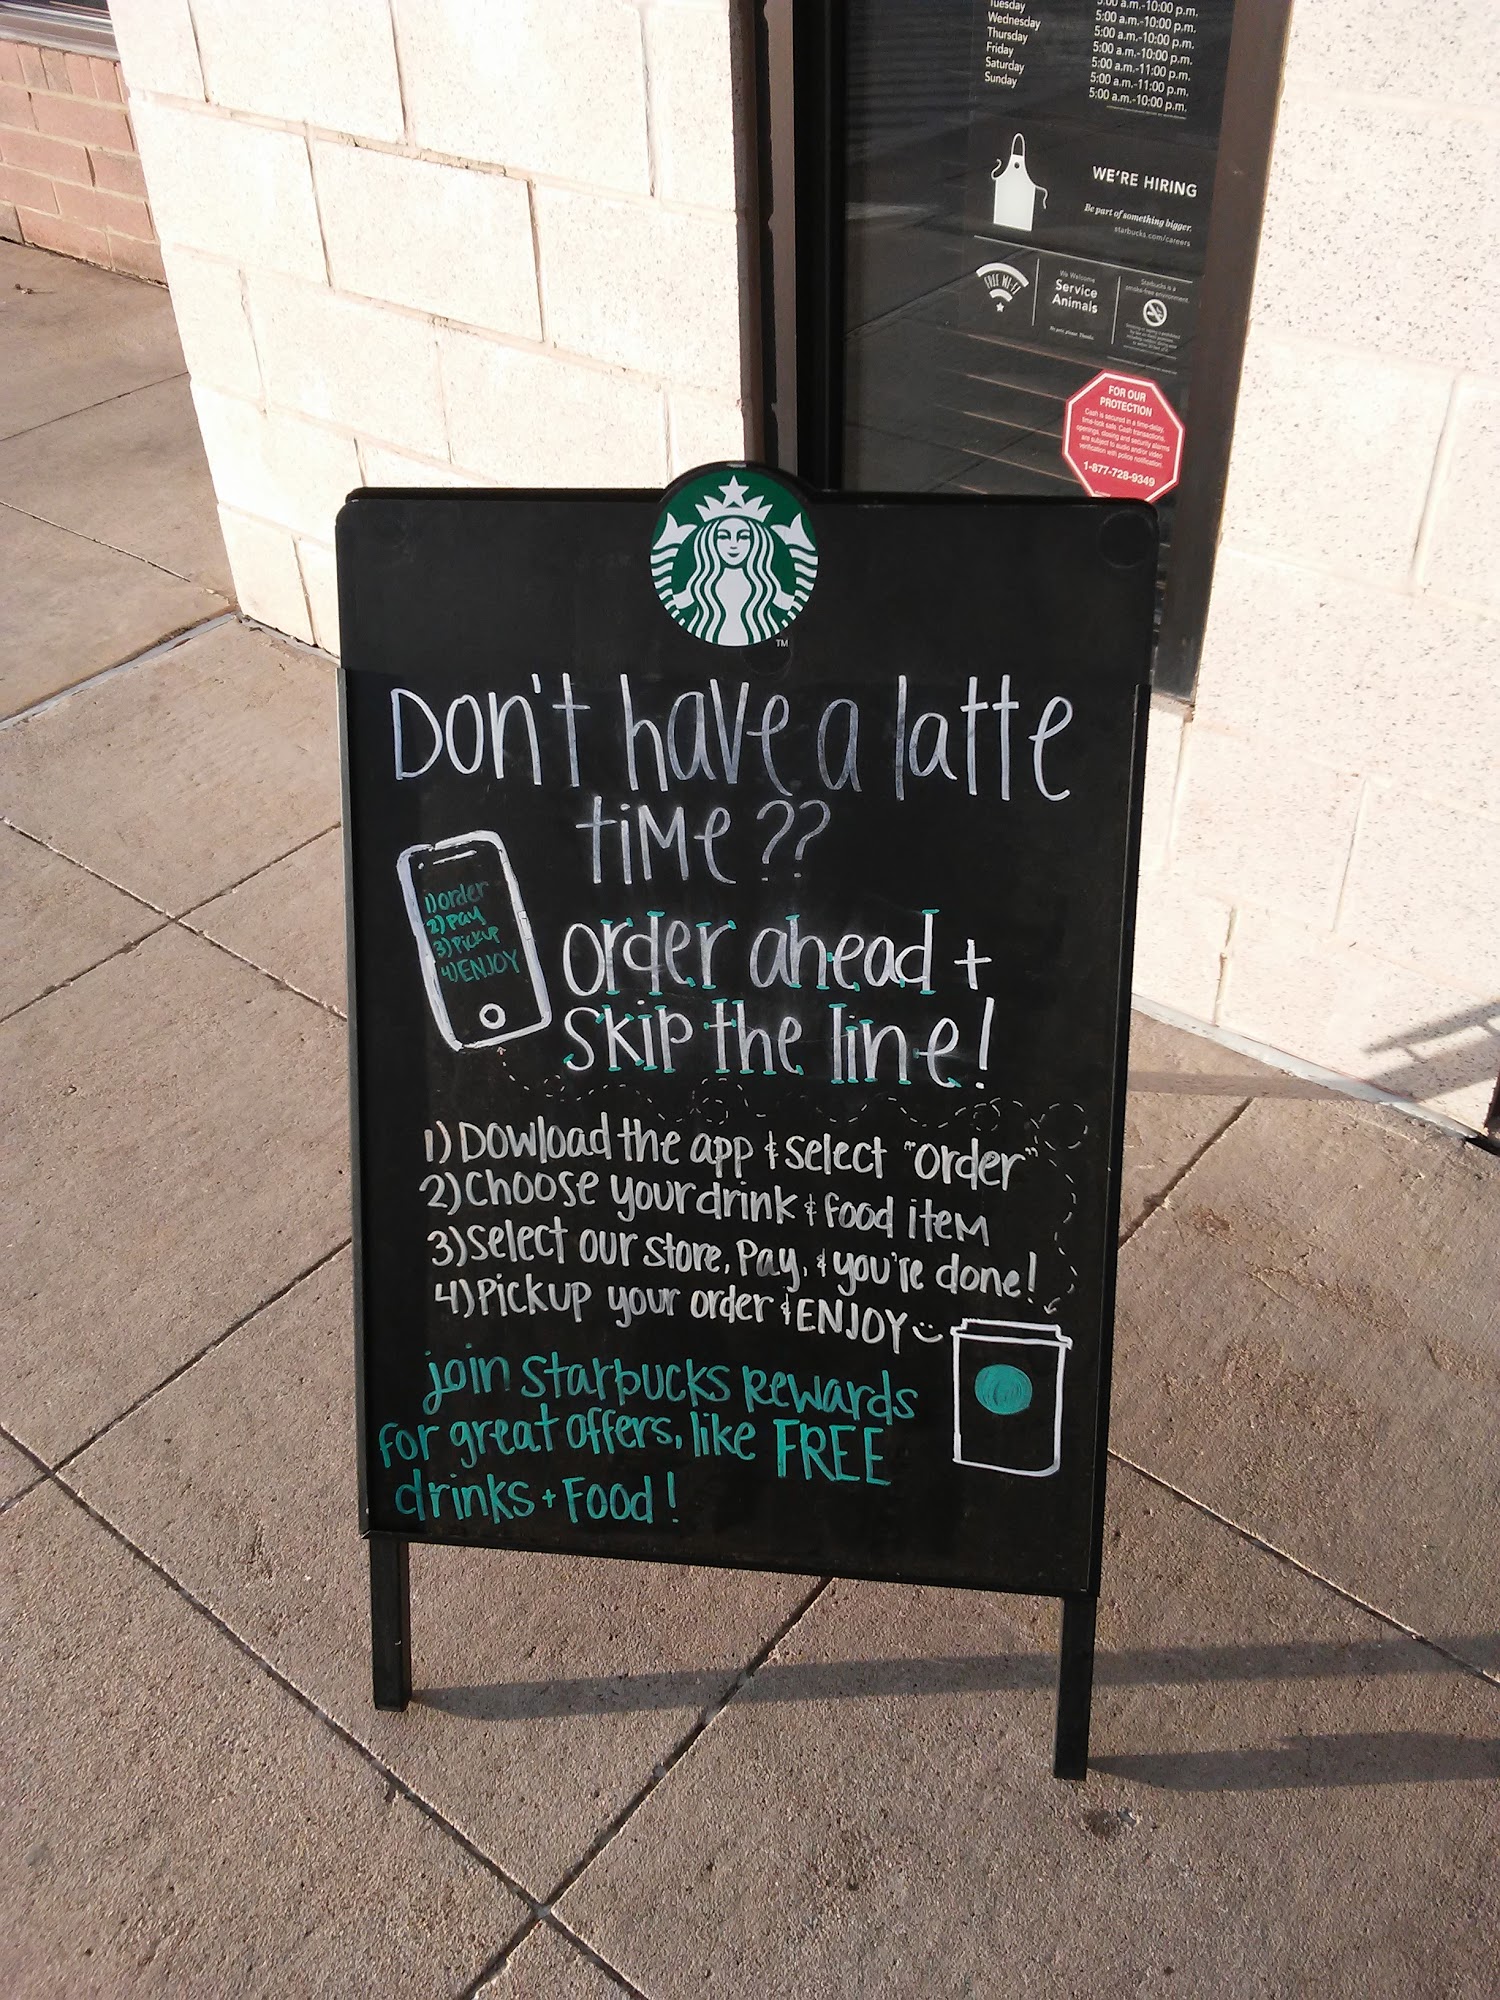 Tuesday 5:00 a.m.-10:00 p.m.
Wednesday 5:00 a.m.-10:00 p.m.
Thursday 5:00 a.m.-10:00 p.m.
Friday 5:00 a.m.-11:00 p.m.
Saturday 5:00 a.m.-11:00 p.m.
Sunday 5:00 a.m.-10:00 p.m.
WE'RE HIRING
Be part of something bigger.
starbucks.com/careers
FREE WI-FI
We Welcome
Service
Animals
No pets please. Thanks.
Starbucks is a
smoke-free environment.
FOR OUR
PROTECTION
Cash is secured in a time-delay,
time-lock safe. Cash transactions,
openings, closing and security alarms
are subject to audio and/or video
verification with police notification.
1-877-728-9349
TM
Don't have a latte
time??
1) order
2) pay
3) Pickup
4) ENJOY
order ahead +
skip the line!
1) Dowload the app & select "order"
2) Choose your drink & food item
3) Select our store, Pay, & you're done!
4) Pickup your order & ENJOY
join Starbucks Rewards
for great offers, like FREE
drinks + Food!